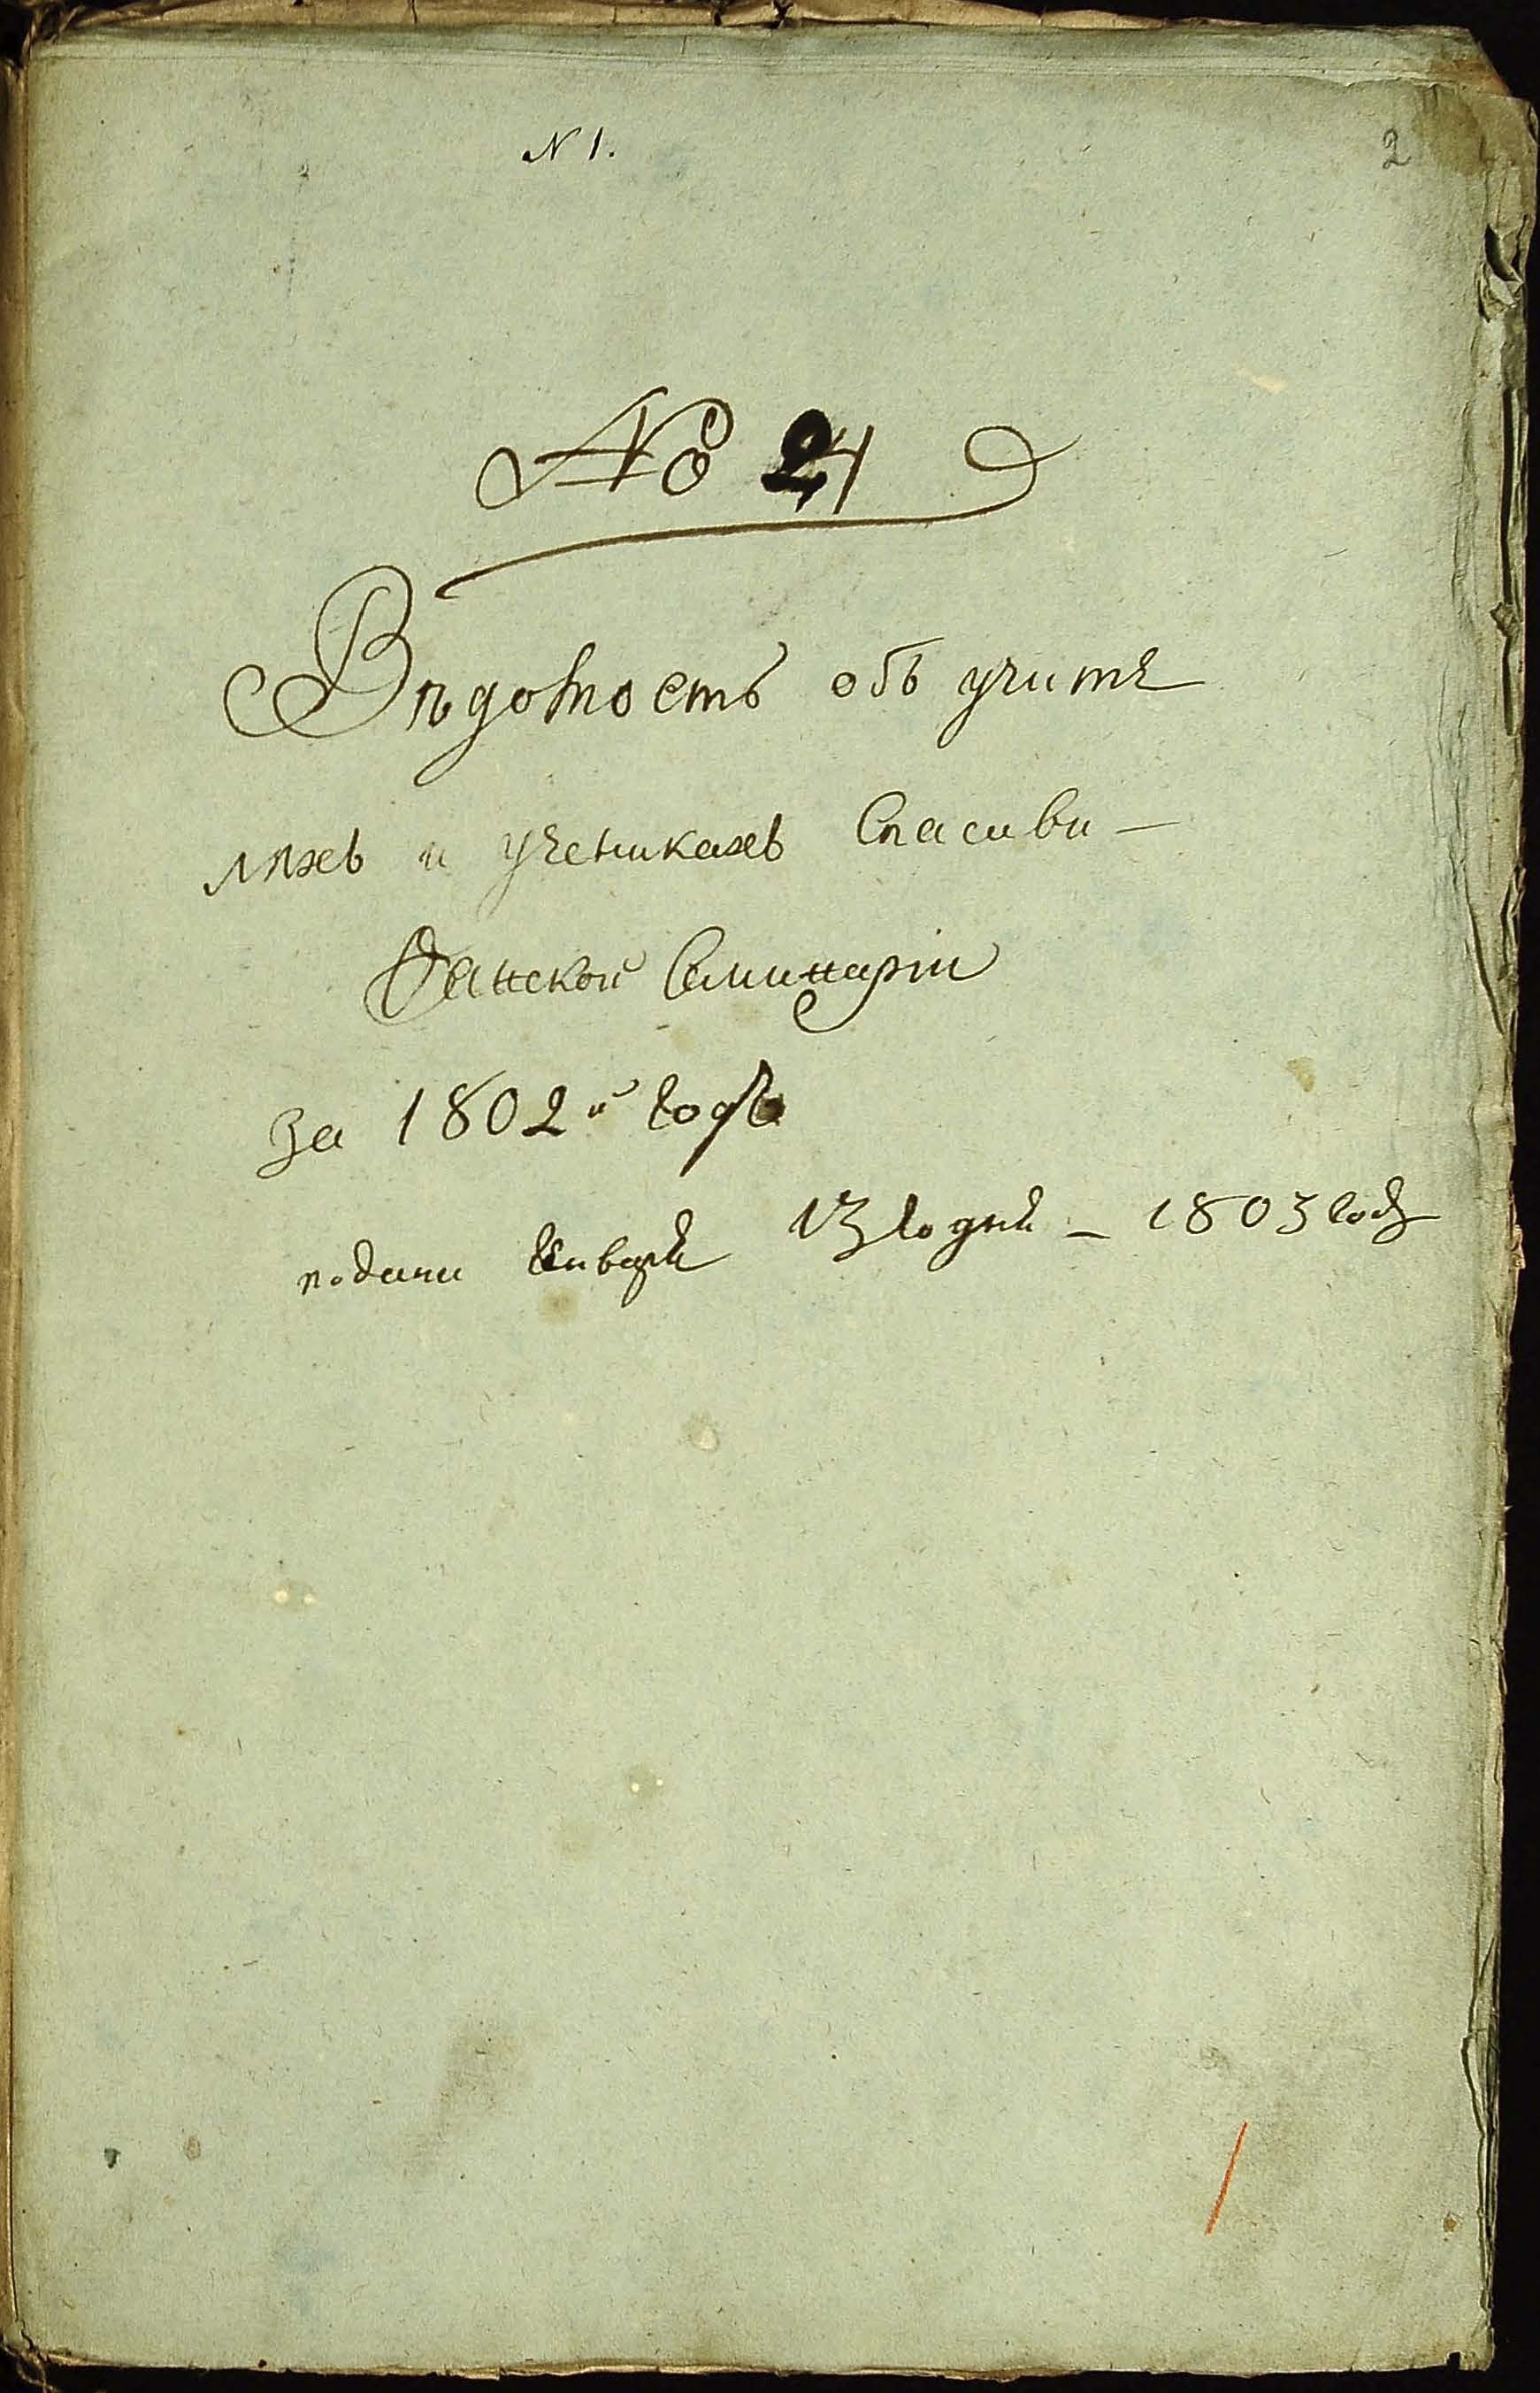 N 1.
2
№ 24
Вѣдомость объ учите
ляхъ и ученикахъ Спасиви-
фанской Семинаріи
за 1802й годъ
подани Января 13 го дня - 1803 года